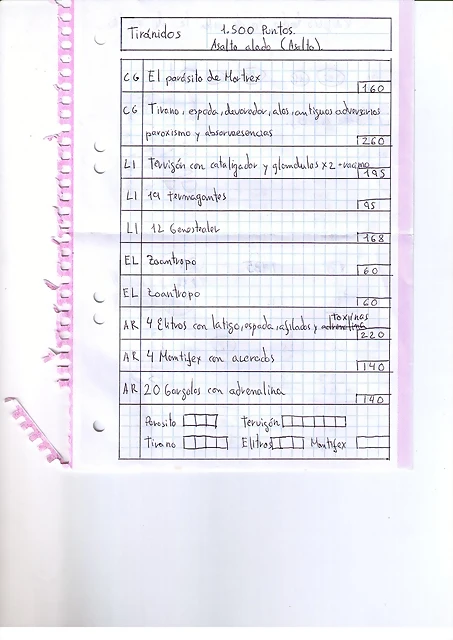 Tiránidos 1.500 Puntos.
Asalto alado (Asalto).
CG El parásito de Mortrex 160
CG Tirano, espada, devorador, alas, antiguos adversarios
paroxismo y absorveesencias 260
LI Tervigón con catalizador y glandulas x2 195
LI 19 termagantes 95
LI 12 Genestealer 168
EL Zoantropo 60
EL Zoantropo 60
AR 4 Elitros con latigo, espada, afilados y toxinas 220
AR 4 Mantifex con acerados 140
AR 20 Gargolas con adrenalina 140
Parasito Tervigón
Tirano Elitros Mantifex